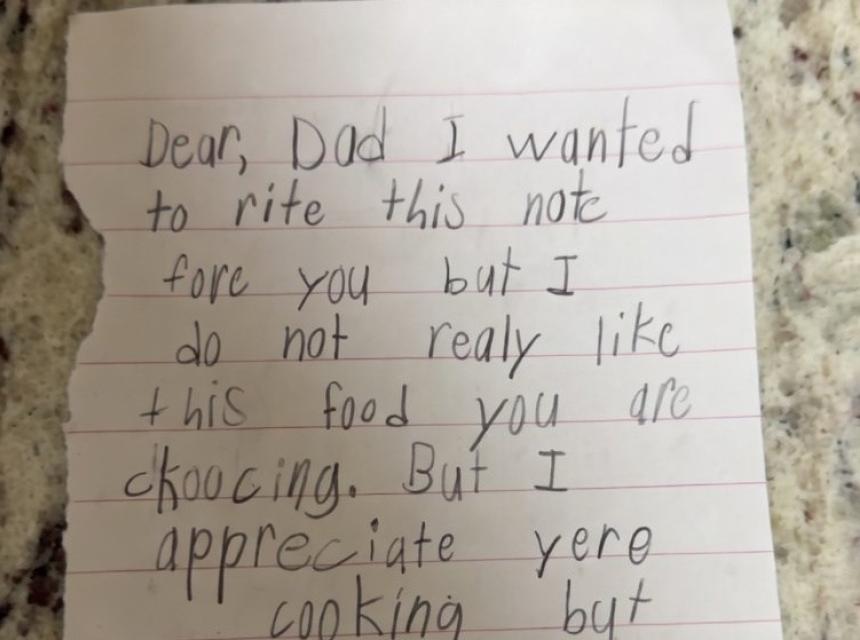 Dear, Dad I wanted
to rite this note
fore you but I
do not realy like
this food you are
choocing. But I
appreciate yere
cooking but